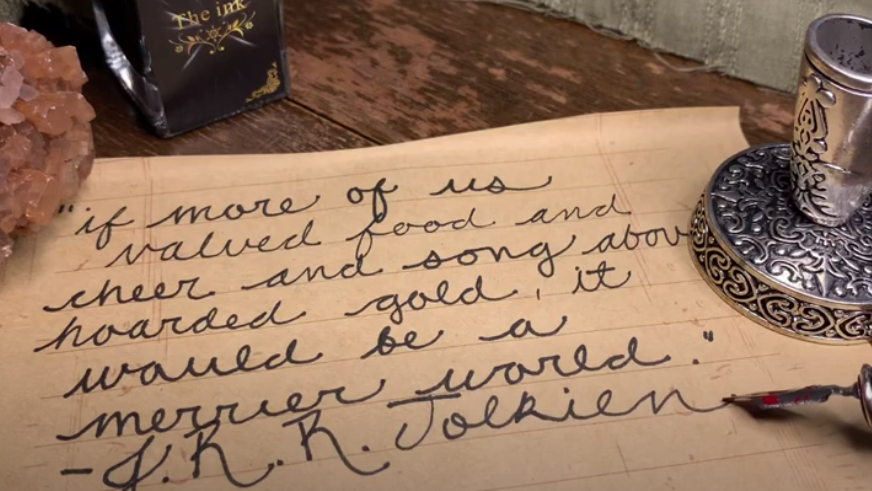 The ink
"if more of us
valued food and
cheer and song abov
hoarded gold, it
would be a
merrier world."
-J.R.R. Tolkien